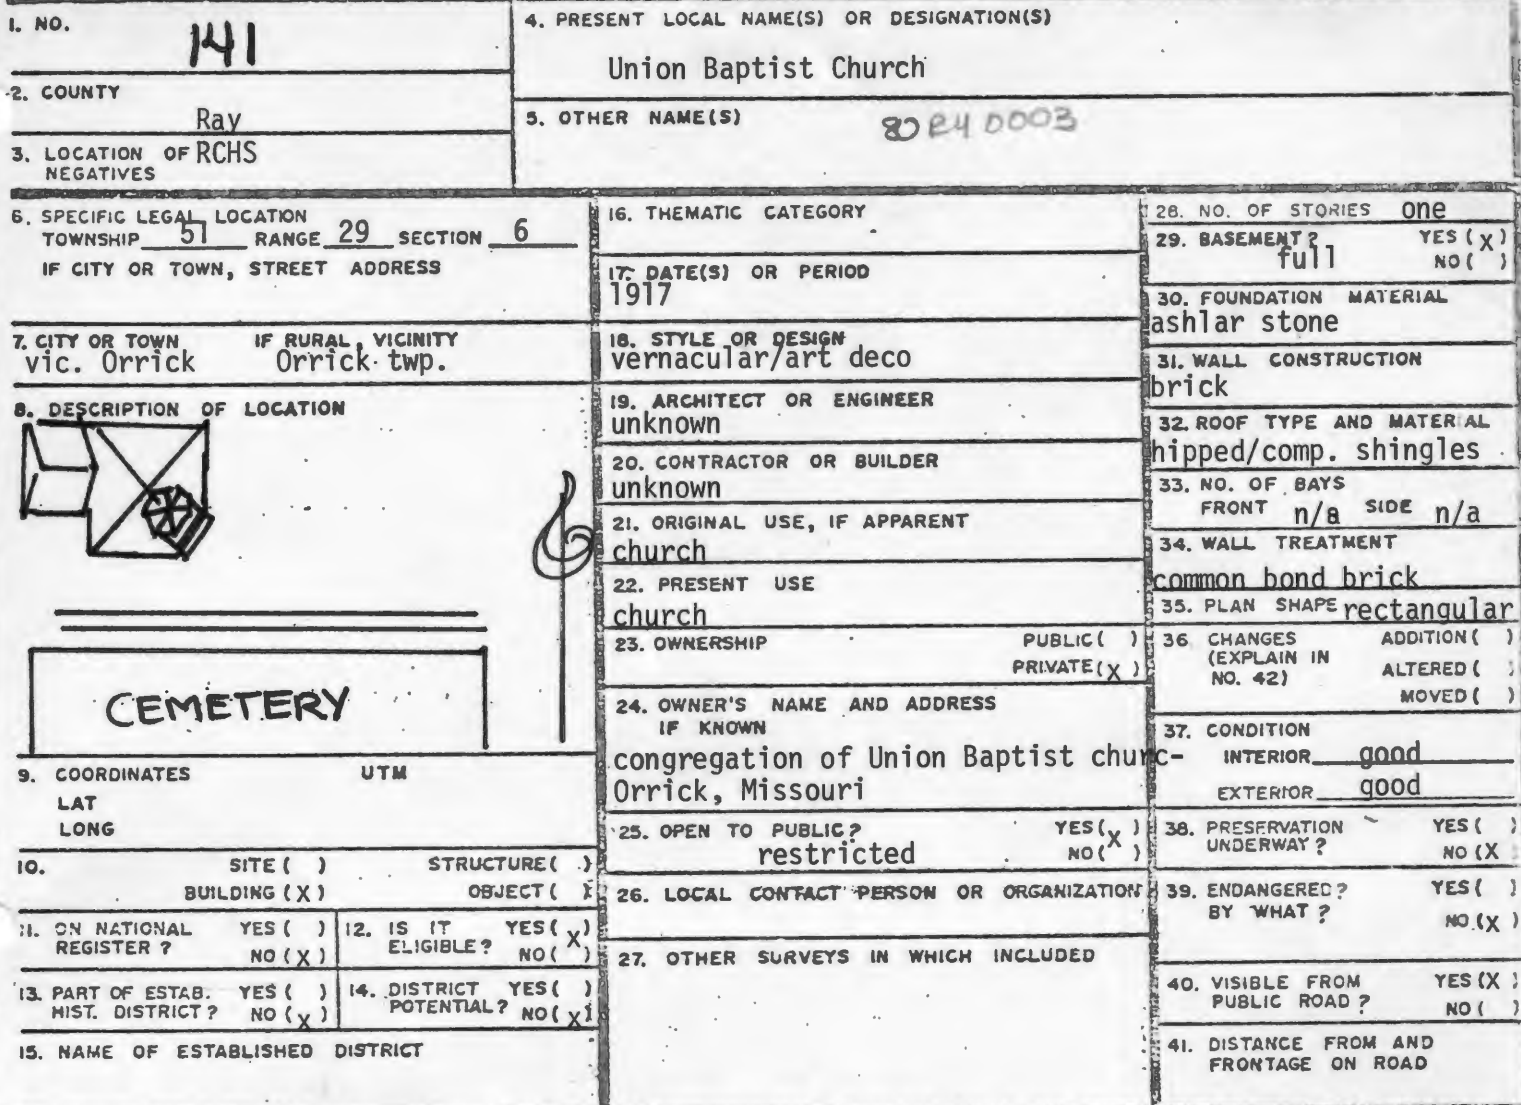 1. NO.
141
2. COUNTY
Ray
3. LOCATION OF RCHS
NEGATIVES
4. PRESENT LOCAL NAME(S) OR DESIGNATION(S)
Union Baptist Church
5. OTHER NAME(S)
6. SPECIFIC LEGAL LOCATION
TOWNSHIP 51 RANGE 29 SECTION 6
IF CITY OR TOWN, STREET ADDRESS
7. CITY OR TOWN IF RURAL, VICINITY
vic. Orrick Orrick twp.
8. DESCRIPTION OF LOCATION
CEMETERY
9. COORDINATES UTM
LAT
LONG
10. SITE ( ) STRUCTURE ( )
BUILDING (X) OBJECT ( )
11. ON NATIONAL YES ( )
REGISTER ? NO (X)
12. IS IT YES (X)
ELIGIBLE? NO ( )
13. PART OF ESTAB. YES ( )
HIST. DISTRICT? NO (X)
14. DISTRICT YES ( )
POTENTIAL? NO (X)
15. NAME OF ESTABLISHED DISTRICT
16. THEMATIC CATEGORY
17. DATE(S) OR PERIOD
1917
18. STYLE OR DESIGN
vernacular/art deco
19. ARCHITECT OR ENGINEER
unknown
20. CONTRACTOR OR BUILDER
unknown
21. ORIGINAL USE, IF APPARENT
church
22. PRESENT USE
church
23. OWNERSHIP PUBLIC ( )
PRIVATE (X)
24. OWNER'S NAME AND ADDRESS
IF KNOWN
congregation of Union Baptist churc-
Orrick, Missouri
25. OPEN TO PUBLIC? YES (X)
restricted NO ( )
26. LOCAL CONTACT PERSON OR ORGANIZATION
27. OTHER SURVEYS IN WHICH INCLUDED
28. NO. OF STORIES one
29. BASEMENT? YES (X)
full NO ( )
30. FOUNDATION MATERIAL
ashlar stone
31. WALL CONSTRUCTION
brick
32. ROOF TYPE AND MATERIAL
hipped/comp. shingles
33. NO. OF BAYS
FRONT n/a SIDE n/a
34. WALL TREATMENT
common bond brick
35. PLAN SHAPE rectangular
36. CHANGES ADDITION ( )
(EXPLAIN IN ALTERED ( )
NO. 42) MOVED ( )
37. CONDITION
INTERIOR good
EXTERIOR good
38. PRESERVATION YES ( )
UNDERWAY? NO (X
39. ENDANGERED? YES ( )
BY WHAT ? NO (X)
40. VISIBLE FROM YES (X)
PUBLIC ROAD ? NO ( )
41. DISTANCE FROM AND
FRONTAGE ON ROAD